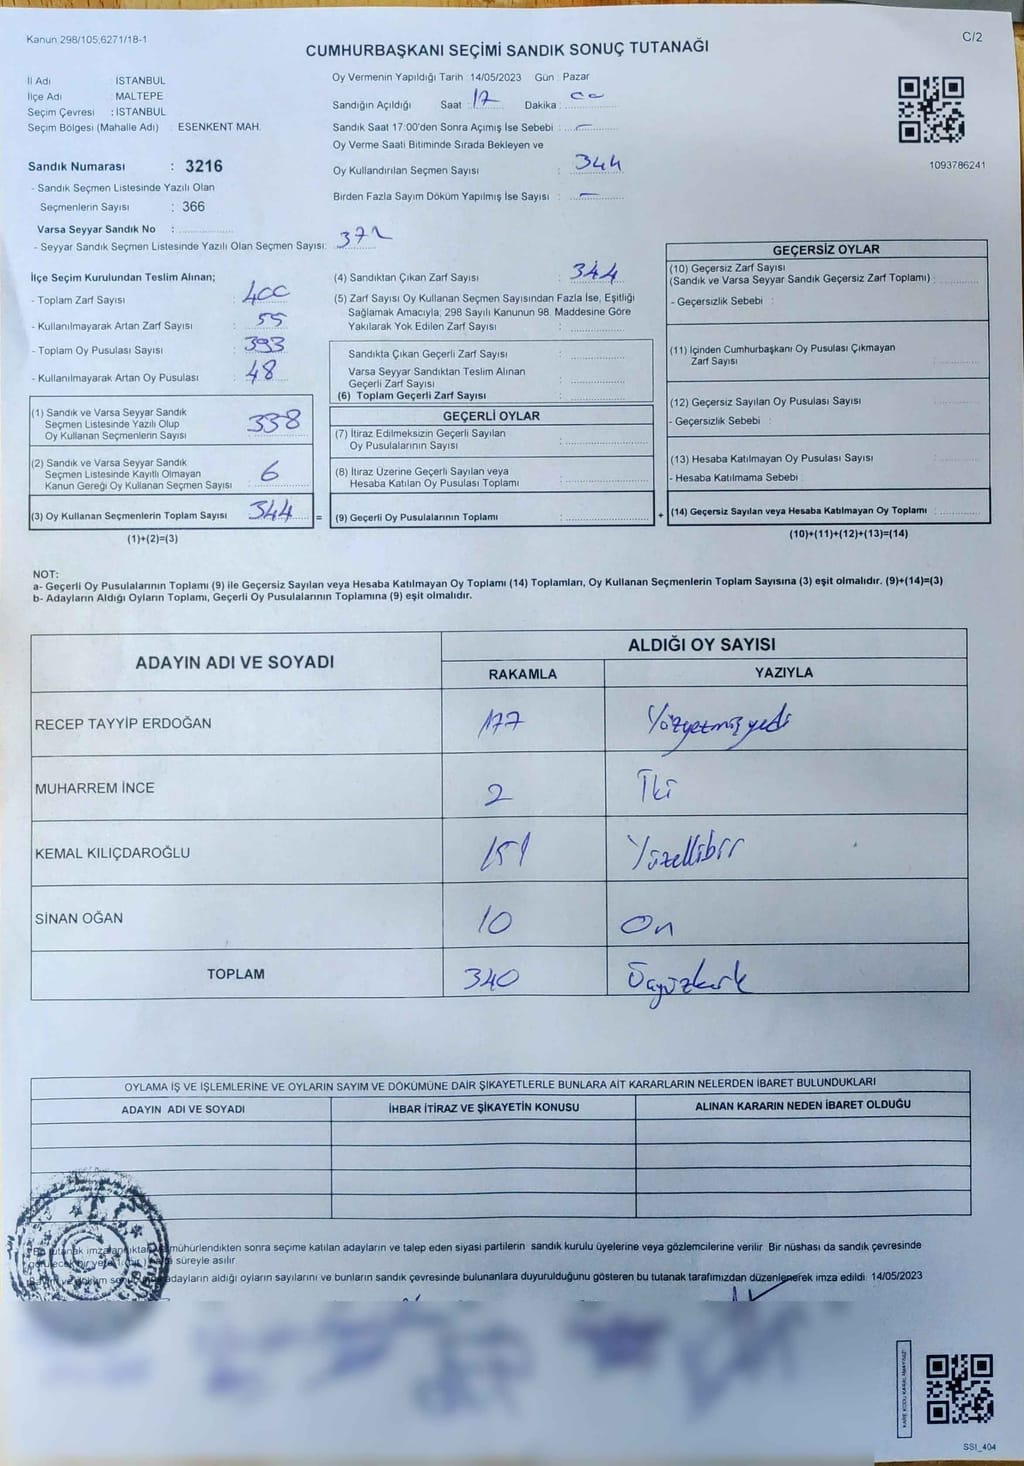 Kanun 298/105,6271/18-1
C/2
CUMHURBAŞKANI SEÇİMİ SANDIK SONUÇ TUTANAĞI
İl Adı : İSTANBUL
İlçe Adı : MALTEPE
Seçim Çevresi : İSTANBUL
Seçim Bölgesi (Mahalle Adı) : ESENKENT MAH.
Sandık Numarası : 3216
- Sandık Seçmen Listesinde Yazılı Olan
Seçmenlerin Sayısı : 366
Varsa Seyyar Sandık No :
- Seyyar Sandık Seçmen Listesinde Yazılı Olan Seçmen Sayısı: 372
Oy Vermenin Yapıldığı Tarih 14/05/2023 Gün : Pazar
Sandığın Açıldığı Saat : 17 Dakika : 00
Sandık Saat 17:00'den Sonra Açımış İse Sebebi : —
Oy Verme Saati Bitiminde Sırada Bekleyen ve
Oy Kullandırılan Seçmen Sayısı : 344
Birden Fazla Sayım Döküm Yapılmış İse Sayısı : —
1093786241
İlçe Seçim Kurulundan Teslim Alınan;
- Toplam Zarf Sayısı : 400
- Kullanılmayarak Artan Zarf Sayısı : 55
- Toplam Oy Pusulası Sayısı : 393
- Kullanılmayarak Artan Oy Pusulası : 48
(1) Sandık ve Varsa Seyyar Sandık
Seçmen Listesinde Yazılı Olup
Oy Kullanan Seçmenlerin Sayısı : 338
(2) Sandık ve Varsa Seyyar Sandık
Seçmen Listesinde Kayıtlı Olmayan
Kanun Gereği Oy Kullanan Seçmen Sayısı : 6
(3) Oy Kullanan Seçmenlerin Toplam Sayısı : 344 =
(1)+(2)=(3)
(4) Sandıktan Çıkan Zarf Sayısı : 344
(5) Zarf Sayısı Oy Kullanan Seçmen Sayısından Fazla İse, Eşitliği
Sağlamak Amacıyla, 298 Sayılı Kanunun 98. Maddesine Göre
Yakılarak Yok Edilen Zarf Sayısı :
Sandıkta Çıkan Geçerli Zarf Sayısı :
Varsa Seyyar Sandıktan Teslim Alınan
Geçerli Zarf Sayısı :
(6) Toplam Geçerli Zarf Sayısı :
GEÇERLİ OYLAR
(7) İtiraz Edilmeksizin Geçerli Sayılan
Oy Pusulalarının Sayısı :
(8) İtiraz Üzerine Geçerli Sayılan veya
Hesaba Katılan Oy Pusulası Toplamı :
(9) Geçerli Oy Pusulalarının Toplamı : +
GEÇERSİZ OYLAR
(10) Geçersiz Zarf Sayısı
(Sandık ve Varsa Seyyar Sandık Geçersiz Zarf Toplamı) :
- Geçersizlik Sebebi :
(11) İçinden Cumhurbaşkanı Oy Pusulası Çıkmayan
Zarf Sayısı :
(12) Geçersiz Sayılan Oy Pusulası Sayısı :
- Geçersizlik Sebebi :
(13) Hesaba Katılmayan Oy Pusulası Sayısı :
- Hesaba Katılmama Sebebi :
(14) Geçersiz Sayılan veya Hesaba Katılmayan Oy Toplamı :
(10)+(11)+(12)+(13)=(14)
NOT:
a- Geçerli Oy Pusulalarının Toplamı (9) ile Geçersiz Sayılan veya Hesaba Katılmayan Oy Toplamı (14) Toplamları, Oy Kullanan Seçmenlerin Toplam Sayısına (3) eşit olmalıdır. (9)+(14)=(3)
b- Adayların Aldığı Oyların Toplamı, Geçerli Oy Pusulalarının Toplamına (9) eşit olmalıdır.
ADAYIN ADI VE SOYADI ALDIĞI OY SAYISI
RAKAMLA YAZIYLA
RECEP TAYYİP ERDOĞAN 177 Yüzyetmişyedi
MUHARREM İNCE 2 İki
KEMAL KILIÇDAROĞLU 151 Yüzellibir
SİNAN OĞAN 10 On
TOPLAM 340 Üçyüzkırk
OYLAMA İŞ VE İŞLEMLERİNE VE OYLARIN SAYIM VE DÖKÜMÜNE DAİR ŞİKAYETLERLE BUNLARA AİT KARARLARIN NELERDEN İBARET BULUNDUKLARI
ADAYIN ADI VE SOYADI İHBAR İTİRAZ VE ŞİKAYETİN KONUSU ALINAN KARARIN NEDEN İBARET OLDUĞU
mühürlendikten sonra seçime katılan adayların ve talep eden siyasi partilerin sandık kurulu üyelerine veya gözlemcilerine verilir. Bir nüshası da sandık çevresinde
süreyle asılır.
adayların aldığı oyların sayılarını ve bunların sandık çevresinde bulunanlara duyurulduğunu gösteren bu tutanak tarafımızdan düzenlenerek imza edildi. 14/05/2023
KARE KODU KARALAMAYINIZ!
SSI_404